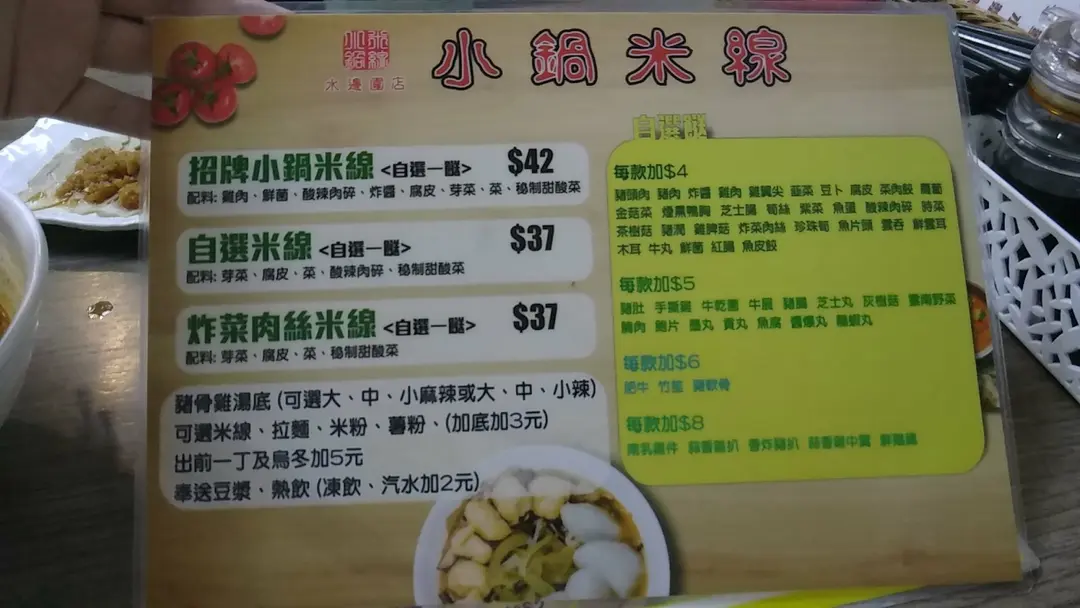 小鍋米線
水邊圍店
招牌小鍋米線 <自選一餸> $42
配料: 雞肉、鮮菌、酸辣肉碎、炸醬、腐皮、芽菜、菜、秘制甜酸菜
自選米線 <自選一餸> $37
配料: 芽菜、腐皮、菜、酸辣肉碎、秘制甜酸菜
炸菜肉絲米線 <自選一餸> $37
配料: 芽菜、腐皮、菜、秘制甜酸菜
豬骨雞湯底 (可選大、中、小麻辣或大、中、小辣)
可選米線、拉麵、米粉、薯粉、(加底加3元)
出前一丁及烏冬加5元
奉送豆漿、熱飲 (凍飲、汽水加2元)
自選餸
每款加$4
豬頭肉 豬肉 炸醬 雞肉 雞翼尖 韮菜 豆卜 腐皮 菜肉餃 蘿蔔
金菇菜 煙熏鴨胸 芝士腸 筍絲 紫菜 魚蛋 酸辣肉碎 時菜
茶樹菇 豬潤 雞脾菇 炸菜肉絲 珍珠筍 魚片頭 雲吞 鮮雲耳
木耳 牛丸 鮮菌 紅腸 魚皮餃
每款加$5
豬肚 牛展 豬腸 芝士丸 灰樹菇 雲南野菜
腩肉 鮑片 墨丸 貢丸 魚腐 龍蝦丸
每款加$6
肥牛 竹笙 豬軟骨
每款加$8
蒜香雞扒 香炸豬扒 蒜香雞中翼